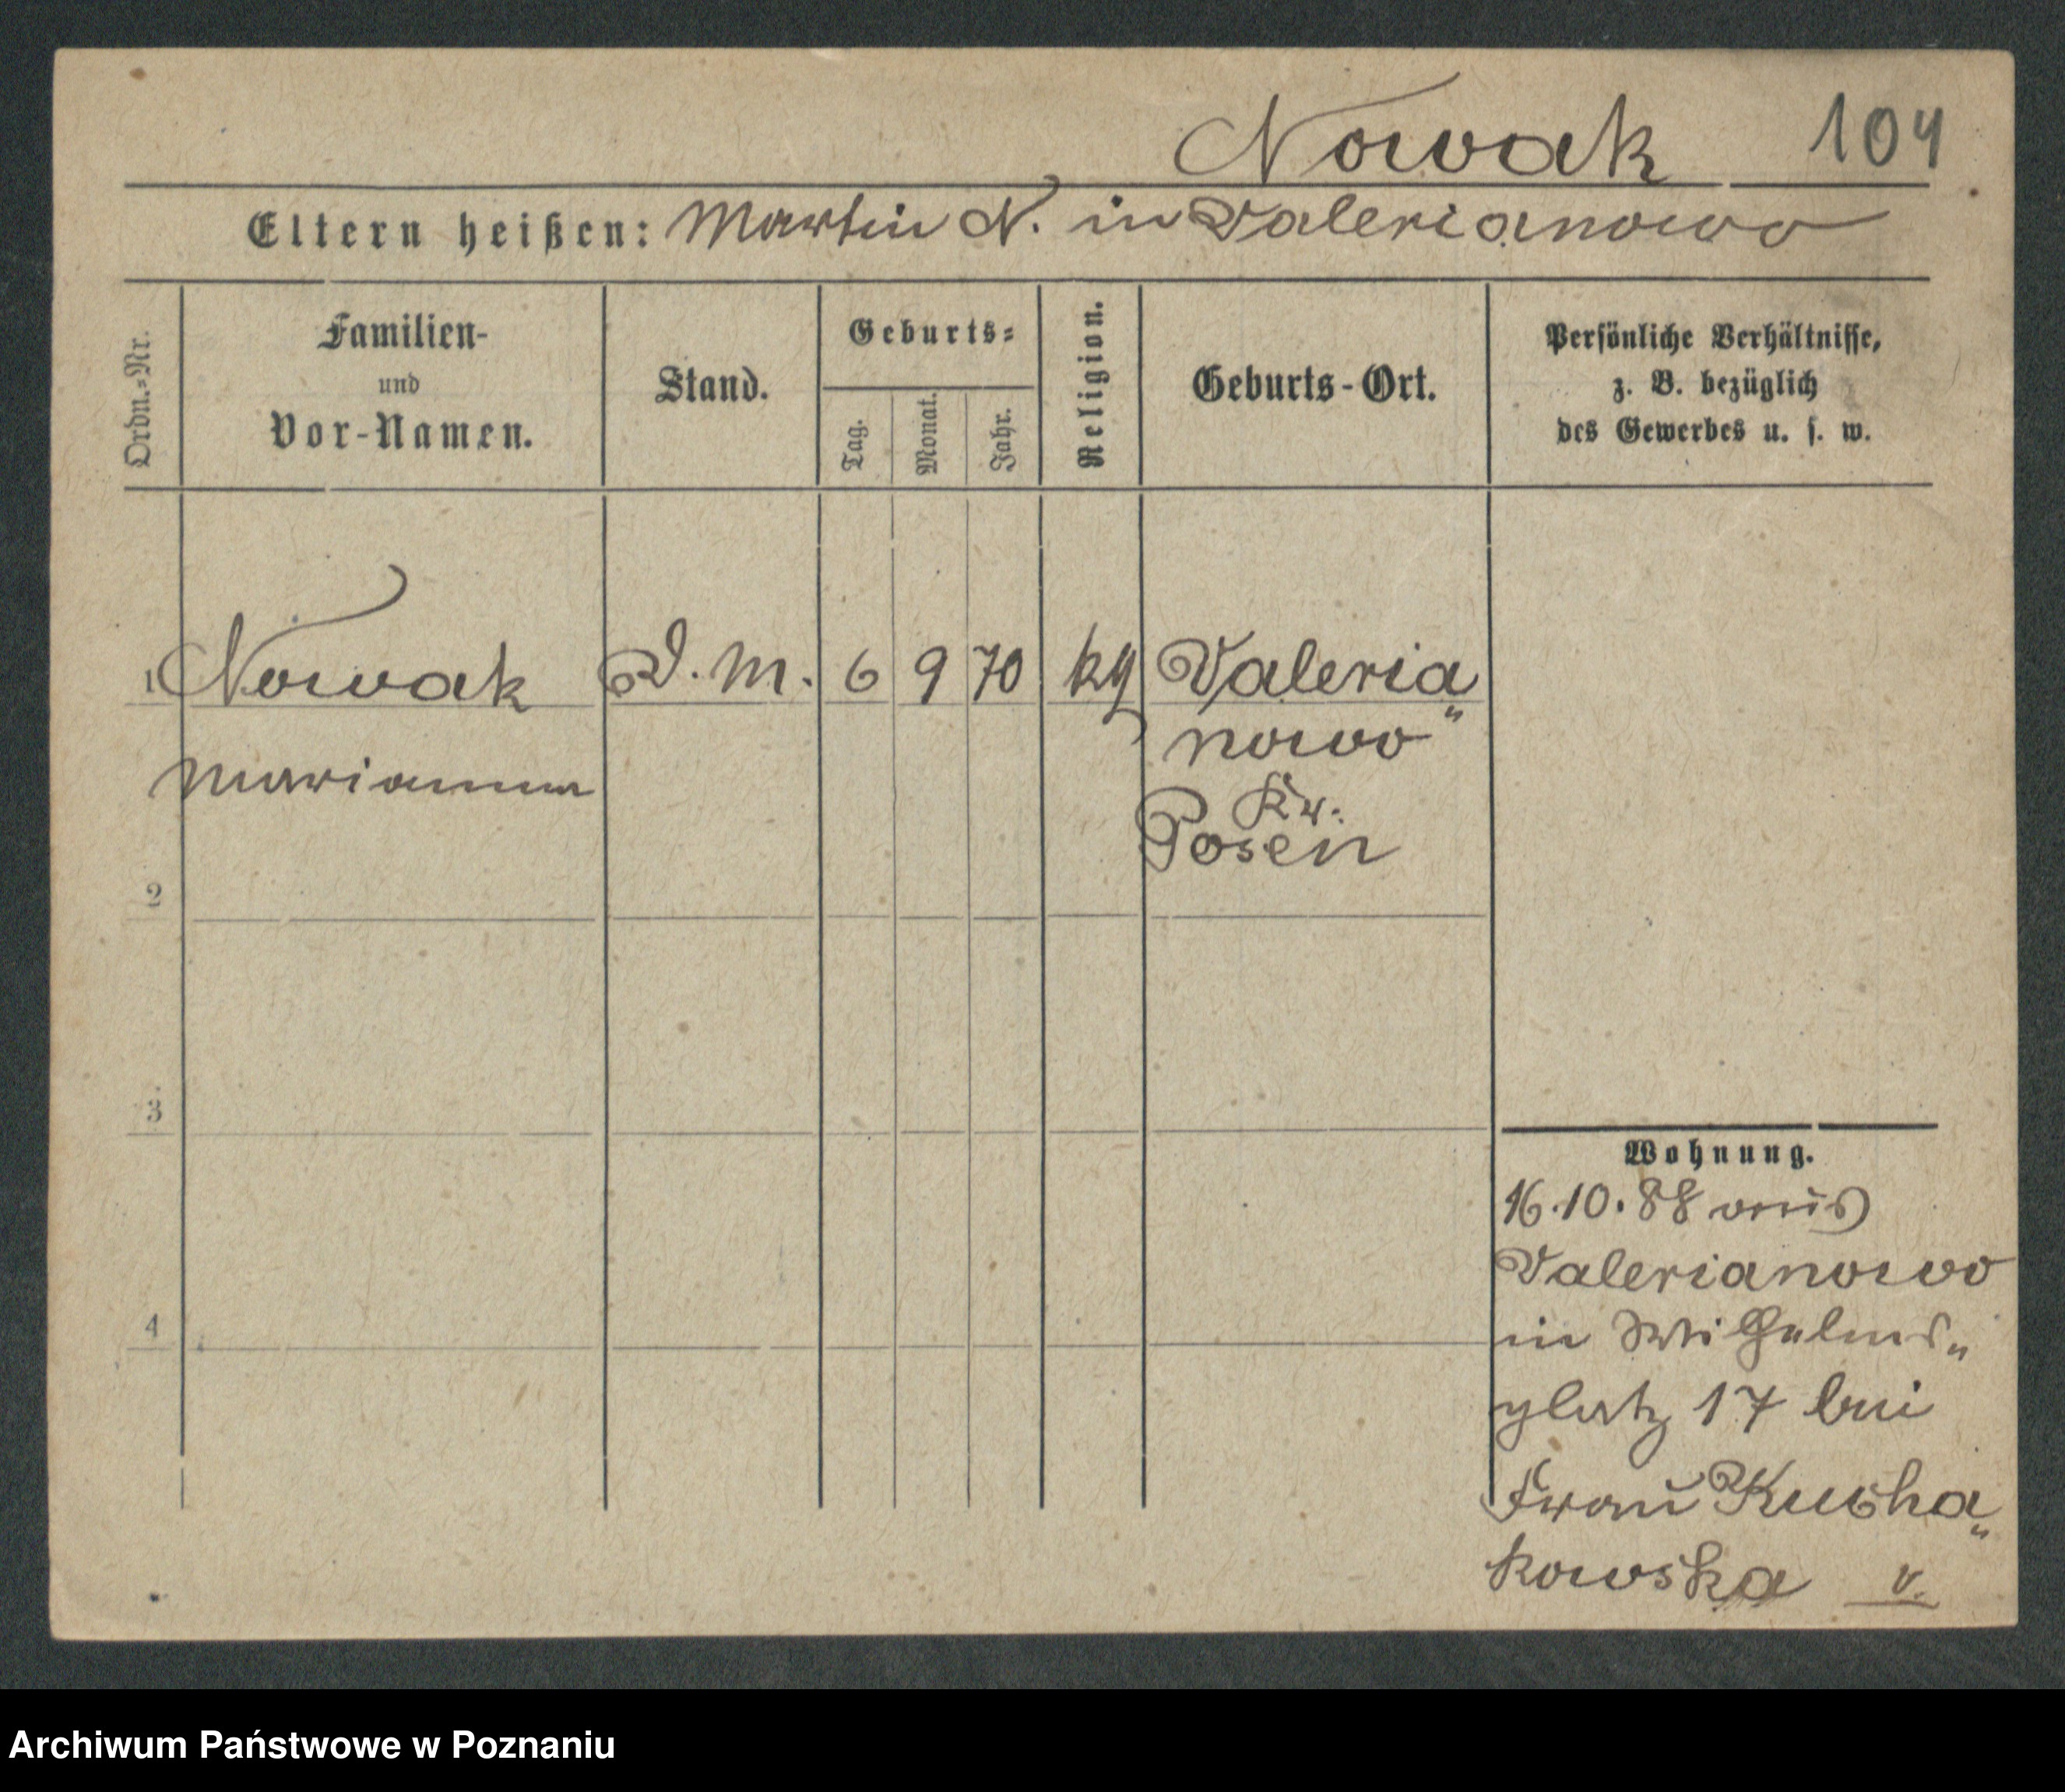 Nowak 104
Eltern heißen: Martin N. in Valerianowo
Ordn.-Nr.
Familien-
und
Vor-Namen.
Stand.
Geburts-
Tag.
Monat.
Jahr.
Religion.
Geburts-Ort.
Persönliche Verhältnisse,
z. B. bezüglich
des Gewerbes u. s. w.
1 Nowak D. M. 6 9 70 kg Valeria„
Marianna nowo
Kr.
Posen
2
3
4
Wohnung.
16.10.88 aus
Valerianowo
in Wilhelms„
platz 17 bei
Frau
kowska v.
Archiwum Państwowe w Poznaniu